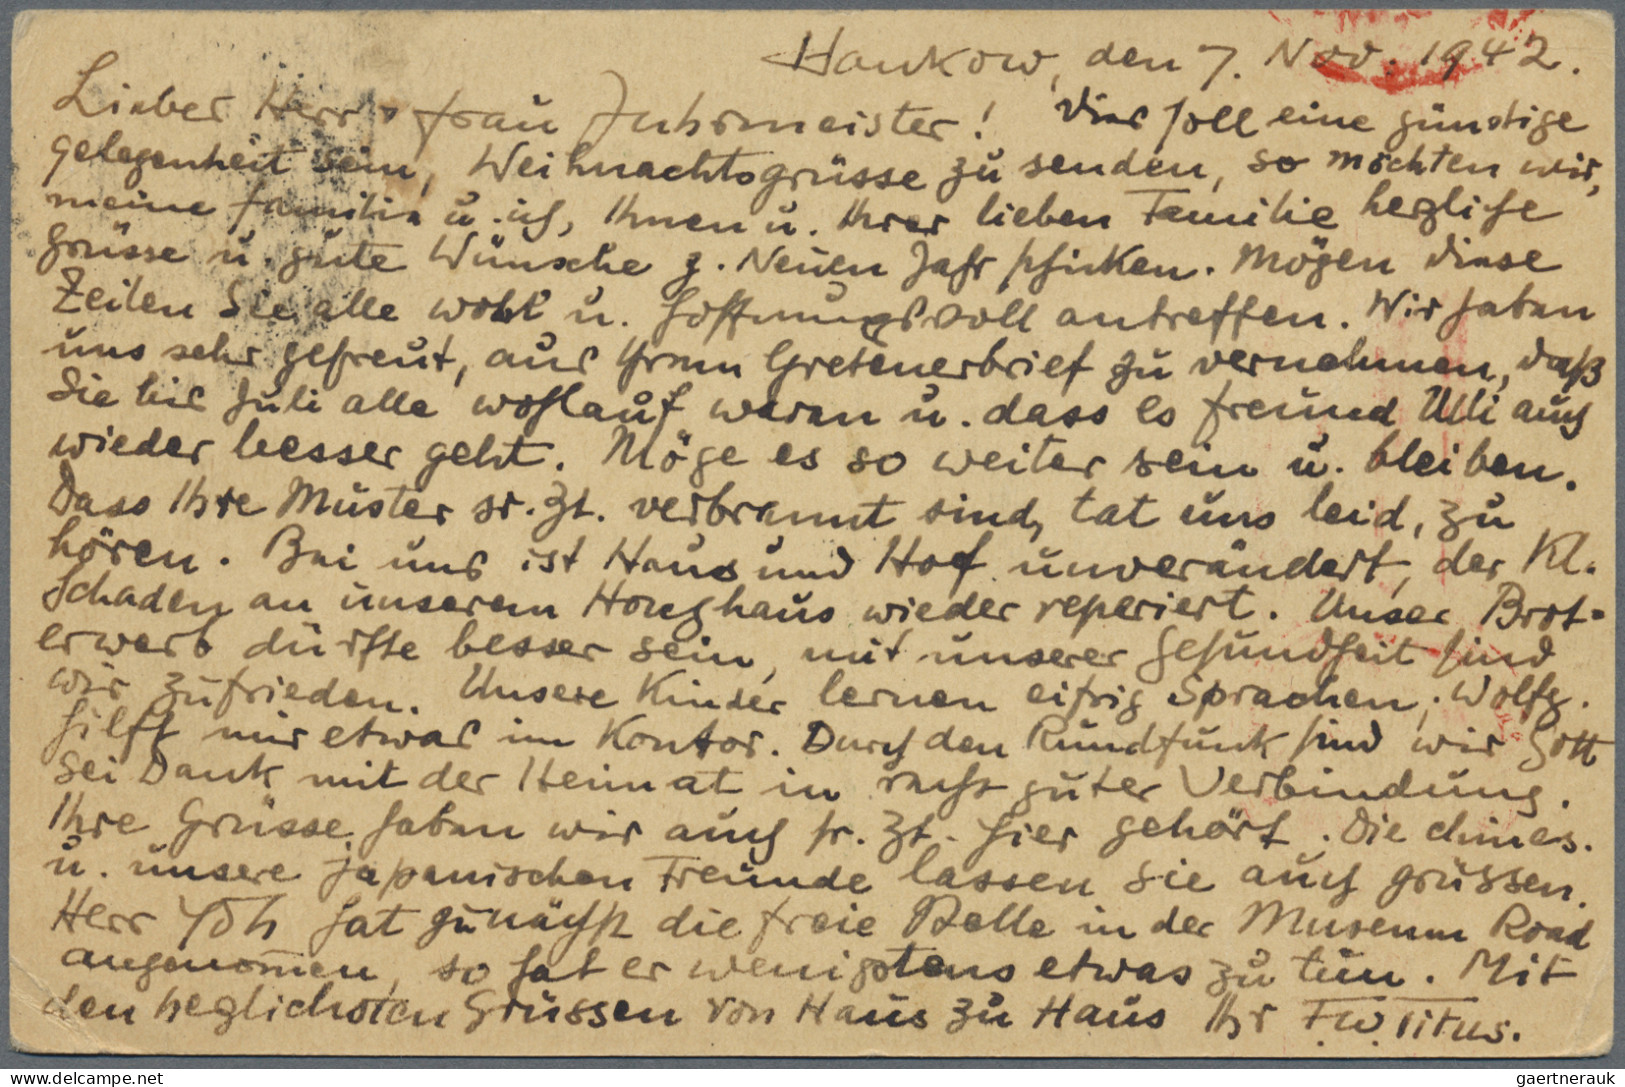 Hankow, den 7. Nov. 1942.
Lieber Herr u. Frau Fuhrmeister! Dies soll eine günstige
gelegenheit sein, Weihnachtsgrüsse zu senden, so möchten wir,
meine Familie u. ich, Ihnen u. Ihrer lieben Familie herzliche
Grüsse u. gute Wünsche z. Neuen Jahr schicken. Mögen diese
Zeilen Sie alle wohl u. hoffnungsvoll antreffen. Wir haben
uns sehr gefreut, aus Ihrem zu vernehmen, daß
Sie bis Juli alle wohlauf waren u. dass es Freund Ulli auch
wieder besser geht. Möge es so weiter sein u. bleiben.
Dass Ihre Muster sr. Zt. verbrannt sind, tat uns leid, zu
hören. Bei uns ist Haus und Hof unverändert, der Kl.
Schaden an unserem Honghaus wieder reperiert. Unser Brot-
erwerb dürfte besser sein, mit unserer Gesundheit sind
wir zufrieden. Unsere Kinder lernen eifrig Sprachen; Wolfg.
hilft mir etwas im Kontor. Durch den Rundfunk sind wir Gott
sei Dank mit der Heimat in recht guter Verbindung.
Ihre Grüsse haben wir auch sr. Zt. hier gehört. Die chines.
u. unsere japanischen Freunde lassen Sie auch grüssen.
Herr Yöh hat zunächst die freie Stelle in der Museum Road
angenommen, so hat er wenigstens etwas zu tun. Mit
den herzlichsten Grüssen von Haus zu Haus Ihr F.W. Titus.
gaertnerauk